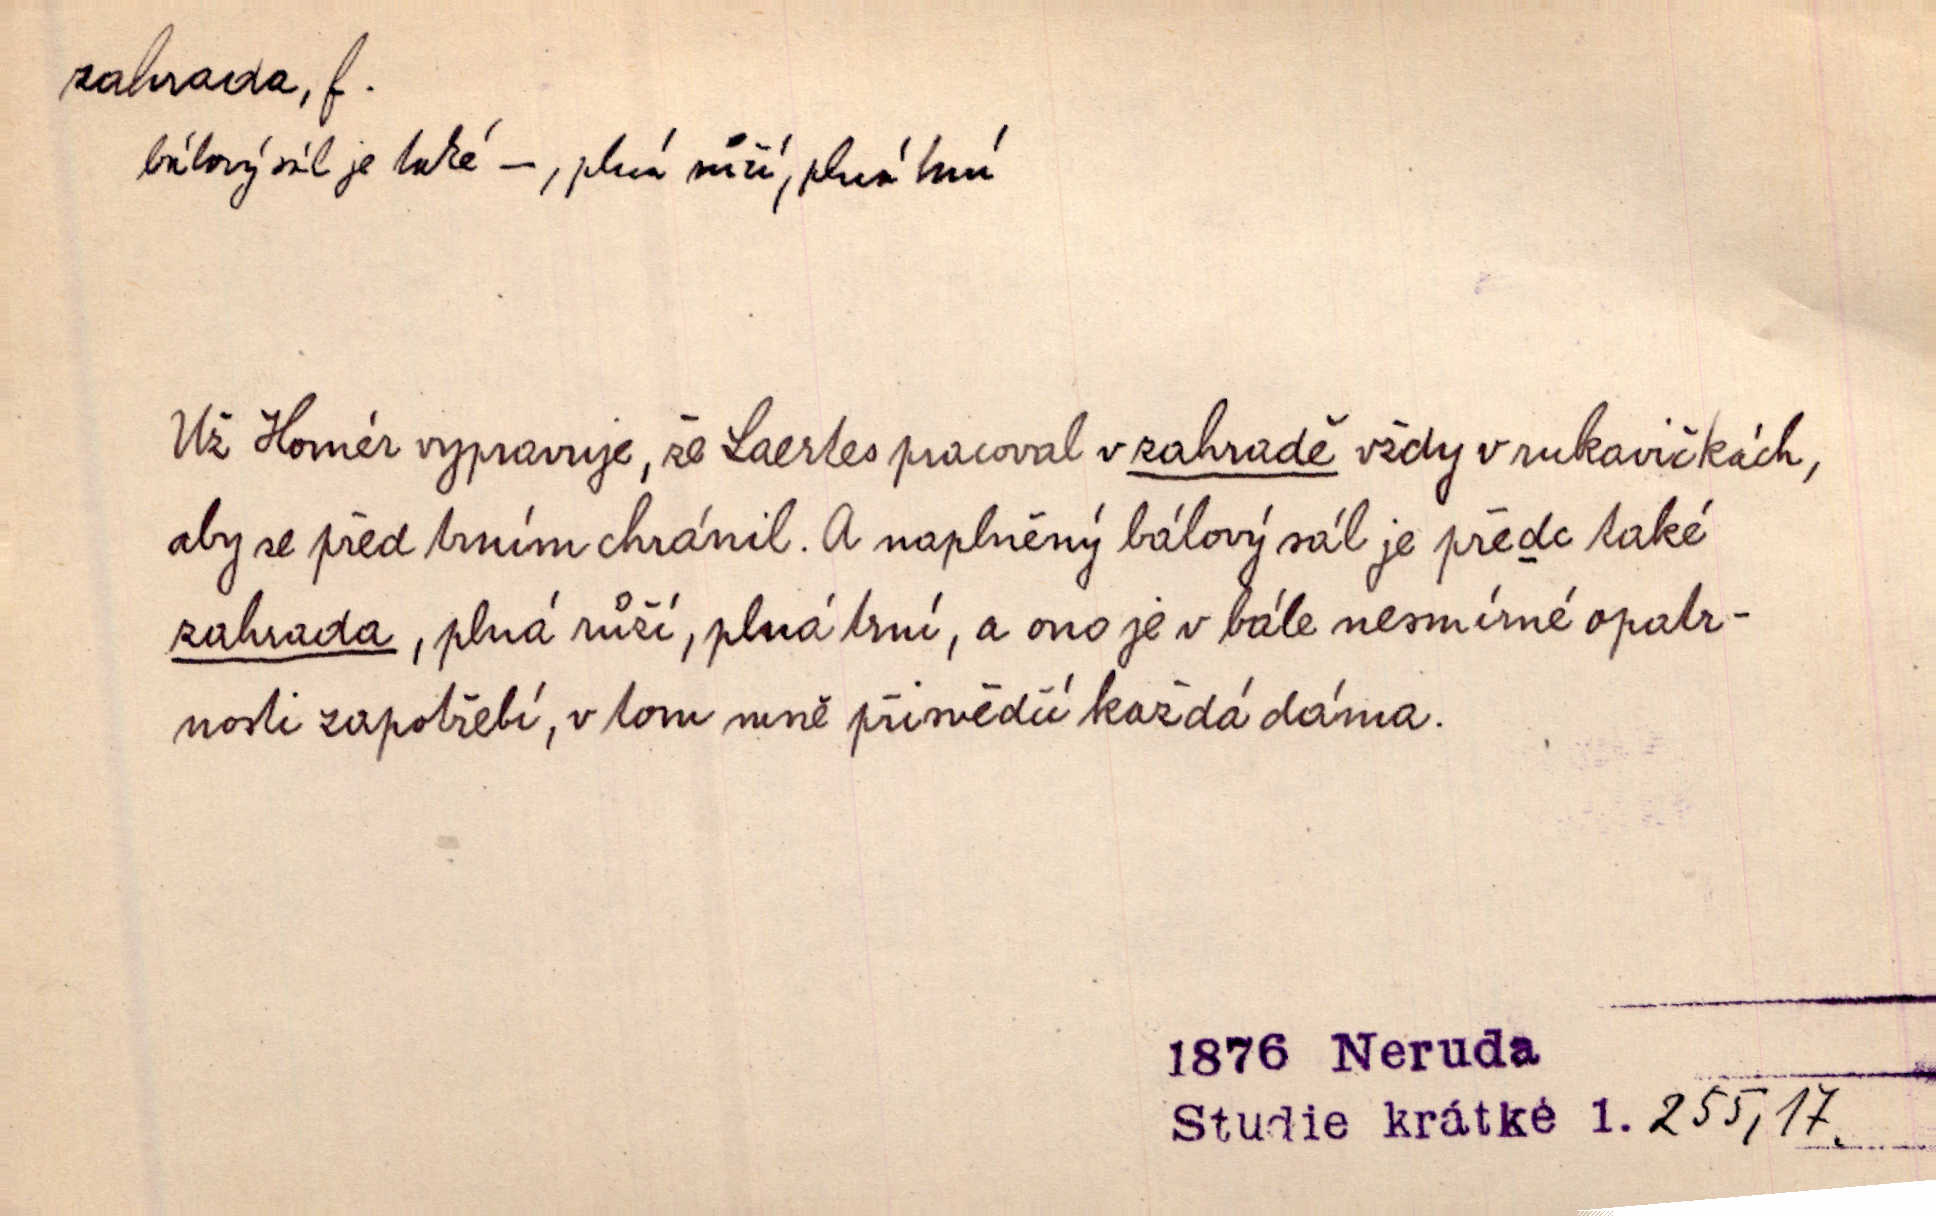 zahrada, f.
bálový sál je také –, plná růží, plná trní
Už Homér vypravuje, že Laertes pracoval v zahradě vždy v rukavičkách,
aby se před trním chránil. A naplněný bálový sál je předc také
zahrada, plná růží, plná trní, a ono je v bále nesmírné opatr-
nosti zapotřebí, v tom mně přisvědčí každá dáma.
1876 Neruda
Studie krátké 1. 255, 17.